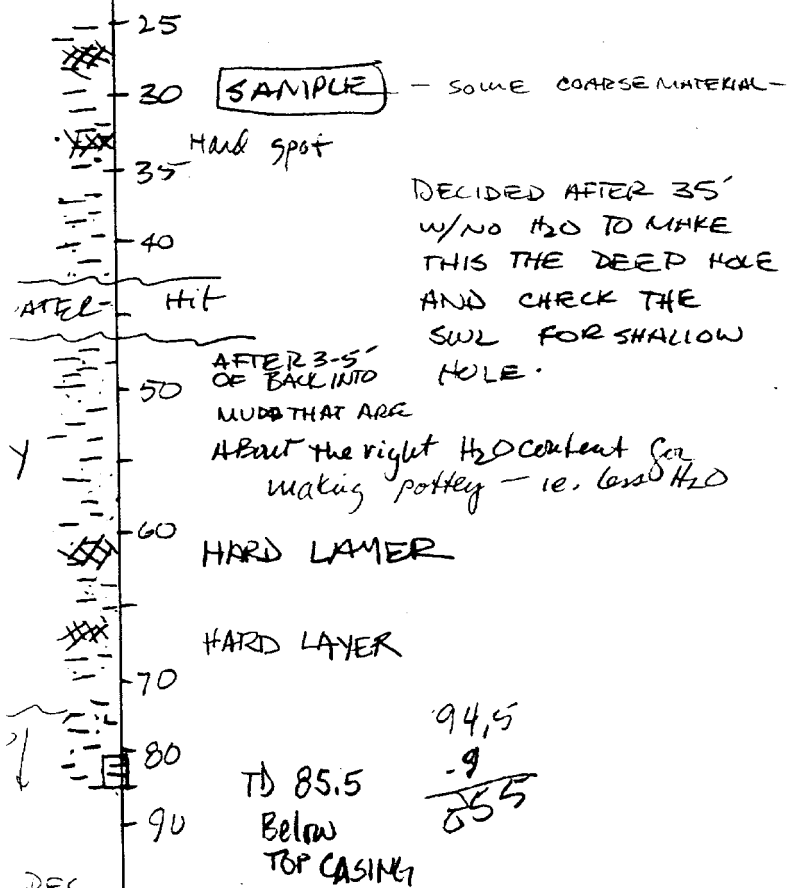 25
30 SAMPLE - SOME COARSE MATERIAL -
Hard spot
35
DECIDED AFTER 35'
W/NO H2O TO MAKE
40
THIS THE DEEP HOLE
ATER- Hit
AND CHECK THE
SWL FOR SHALLOW
HOLE.
AFTER 3-5'
OF BACK INTO
50
MUDD THAT ARE
Y
About the right H2O content for
making pottey - ie. less H2O
60
HARD LAYER
HARD LAYER
70
94.5
-9
855
80
TD 85.5
Below
90
TOP CASING
DEC